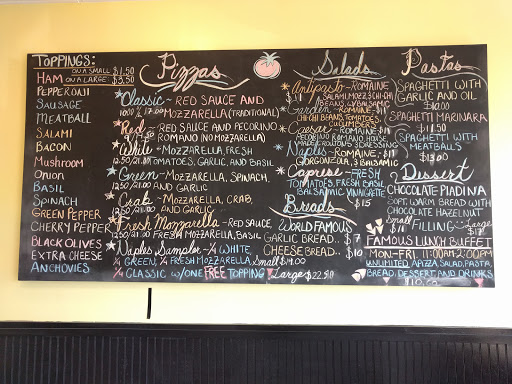 TOPPINGS:
ON A SMALL $1.50
ON A LARGE: $3.50
HAM
PEPPERONI
SAUSAGE
MEATBALL
SALAMI
BACON
MUSHROOM
ONION
BASIL
SPINACH
GREEN PEPPER
CHERRY PEPPER
BLACK OLIVES
EXTRA CHEESE
ANCHOVIES
Pizzas
Classic - RED SAUCE AND
MOZZARELLA (TRADITIONAL)
Red - RED SAUCE AND PECORINO
ROMANO (NO MOZZARELLA)
White - MOZZARELLA, FRESH
TOMATOES, GARLIC, AND BASIL
Green - MOZZARELLA, SPINACH,
AND GARLIC
Crab - MOZZARELLA, CRAB,
AND GARLIC
Fresh Mozzarella - RED SAUCE
FRESH MOZZARELLA, BASIL
Naples Sampler - 1/4 WHITE
1/4 GREEN, 1/4 FRESH MOZZARELLA,
1/4 CLASSIC W/ONE FREE TOPPING
Small $14.00
Large $22.50
Salads
Antipasto - ROMAINE
Garden - ROMAINE
CUCUMBERS
Caesar - ROMAINE
PECORINO ROMANO HOUSE
MADE CROUTONS & DRESSING
Naples - ROMAINE,
GORGONZOLA, & BALSAMIC
Caprese - FRESH
TOMATOES, FRESH BASIL
BALSAMIC VINAIGRETTE
$15
Breads
WORLD FAMOUS
GARLIC BREAD.. $7
CHEESE BREAD.. $10
Pastas
SPAGHETTI WITH
GARLIC AND OIL
$10.00
SPAGHETTI MARINARA
$11.50
SPAGHETTI WITH
MEATBALLS
$13.00
Dessert
CHOCOLATE PIADINA
SOFT, WARM BREAD WITH
CHOCOLATE HAZELNUT
FILLING
Small
Large
FAMOUS LUNCH BUFFET
MON-FRI 11:00AM-2:00PM
UNLIMITED APIZZA, SALAD, PASTA,
BREAD, DESSERT AND DRINKS